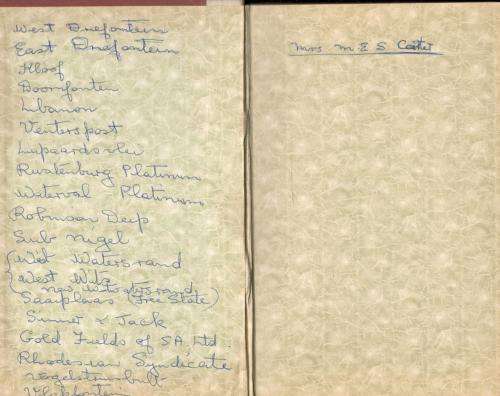 West Driefontein
East Driefontein
Kloof
Doornfontein
Libanon
Venterspost
Luipaardsvlei
Rustenburg Platinum
Waterval Platinum
Robinson Deep
Sub Nigel
Wit Watersrand
West Wits
New Witwatersrand
Saaiplaas (Free State)
Simmer & Jack
Gold Fields of SA Ltd.
Rhodesian Syndicate
Vogelstruisbult
Vlakfontein
Mrs M E S Carter